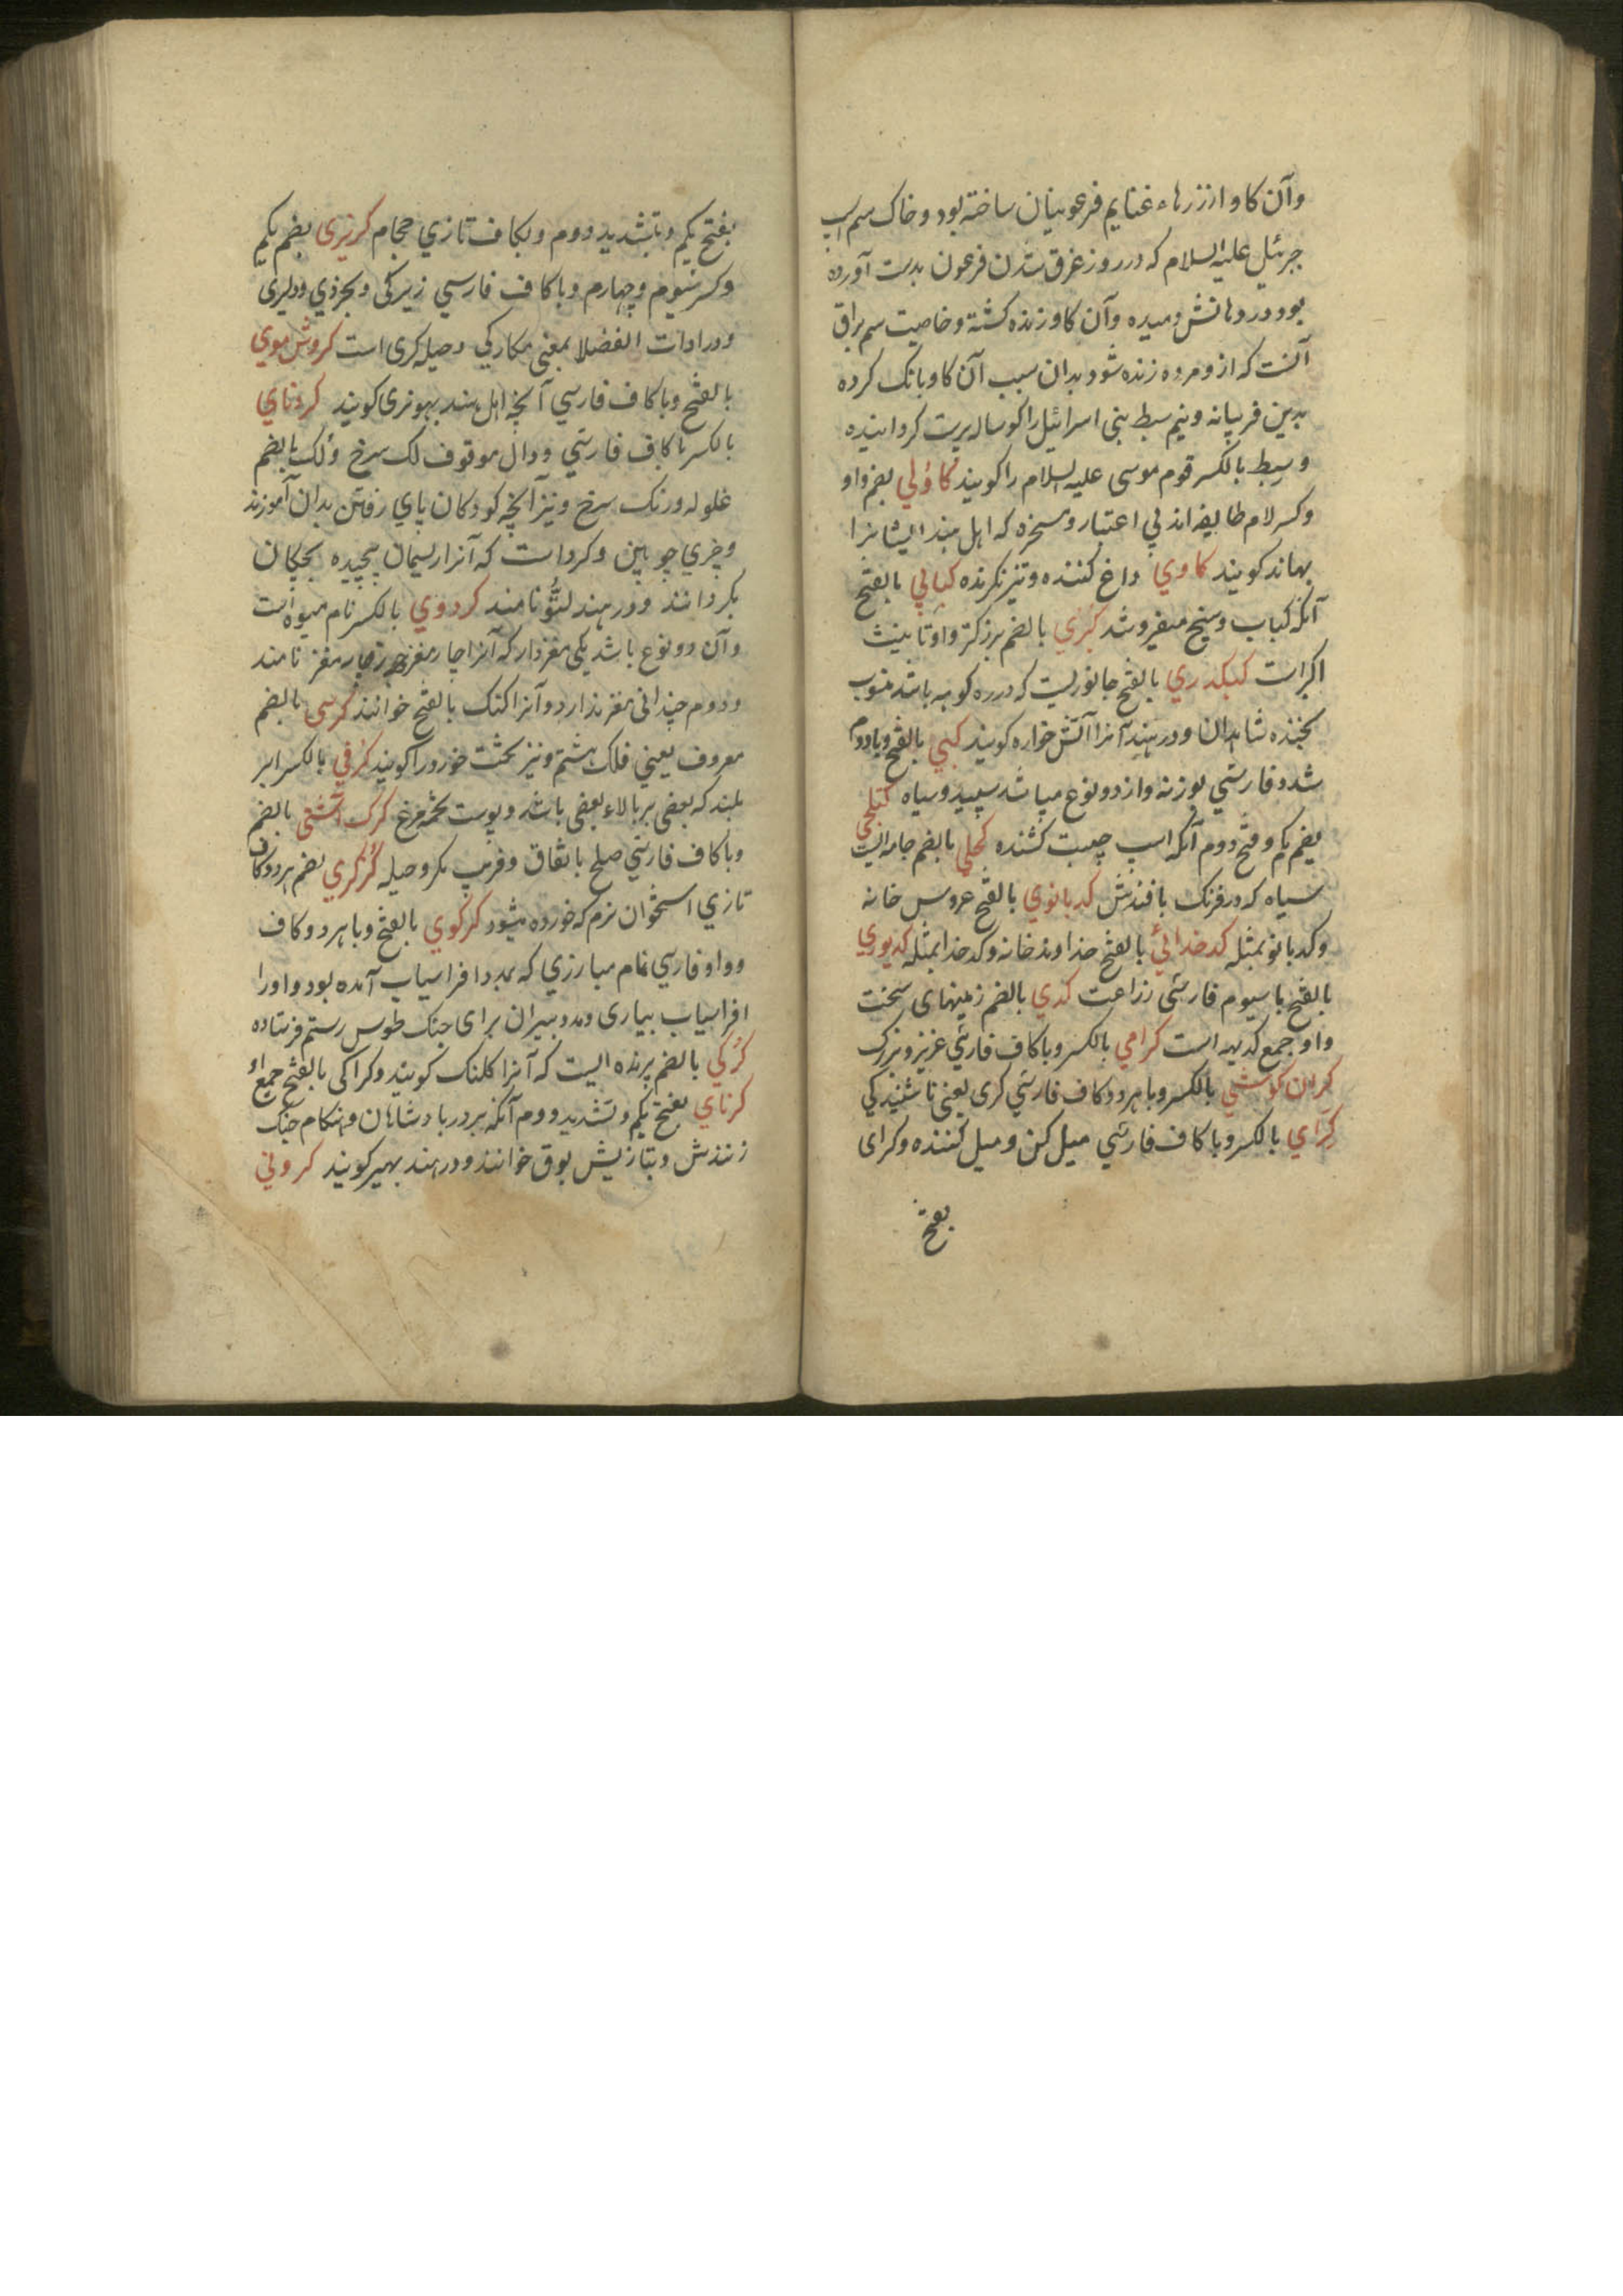 وآن كاو از زرهاء غنایم فرعونیان ساخته بود و خاك سم اسپ
جبرئیل علیه السلام كه در روز غرق شدن فرعون بدست آورده
بود در دهانش دمیده وآن كاو زنده كشته و خاصیت سم براق
آنست كه از و مرده زنده شود بدان سبب آن كاو بانك كرده
بدین فریبانه ونیم سبط بنی اسرائیل را كوساله پرست كردانیده
وسبط بالكسر قوم موسی علیه السلام را كویند كاولي بضم واو
وكسر لام طایفه اند بي اعتبار ومسخره كه اهل هند ایشانرا
بهاند كویند كاوي داغ كننده وتیز نكرنده كبابي بالفتح
آنكه كباب وسیخ میفروشد كبري بالضم بزركتر و او تانیث
اكبر است كبكدري بالفتح جانوریست كه در ره كوه باشد منسوب
بخنده شاهدان ودر هند آنرا آتش خواره كویند كبي بالفتح وبا دوم
شدد فارسي بوزنه و از دو نوع میباشد سپید وسیاه كتلجي
بضم یكم و فتح دوم آنكه اسپ جیبت كشنده كحلي بالضم جامه ایست
سیاه كه در فرنك بافندش كدبانوي بالفتح عروس خانه
وكدبانو بمثله كدخدائي بالفتح خداوند خانه وكدخدا بمثله كدیوري
بالفتح با سیوم فارسي زراعت كدي بالضم زمینهای سخت
واو جمع كدیه است كرامي بالكسر وبا كاف فارسي عزیز وبزرك
كران كوشي بالكسر وبا هر دو كاف فارسي كری یعنی ناشنیدكي
كراي بالكسر وبا كاف فارسي میل كن و میل كننده وكرای
بفتح
بفتح یكم وبتشدید دوم وبكاف تازي حجام كربزی بضم یكم
وكسر سیوم وچهارم وبا كاف فارسي زیركی وبخردي ودلیری
ودر ادات الفضلا بمعنی مكاركي وحیله كری است كروش موي
بالفتح وبا كاف فارسي آنچه اهل هند بهونری كویند كردناي
بالكسر با كاف فارسي ودال موقوف لك سرخ ولك بالضم
غلوله ورنك سرخ ونیز آنچه كودكان پاي رفتن بدان آموزند
وچیزي چوبین وكرد است كه آنرا ریسمان پیچیده بچكان
بكردانند و در هند لتو نامند كردوي بالكسر نام میوه است
وآن دو نوع باشد یكی مغزدار كه آنرا چار مغز وچهار مغز نامند
ودوم چندانی مغز ندارد وآنرا كنك بالفتح خوانند كرسي بالضم
معروف یعني فلك هشتم ونیز تخت خورد را كویند كرفي بالكسر ابر
بلند كه بعضی بر بالاء بعضی باشد وپوست تخم مرغ كرك آشتي بالضم
وبا كاف فارسي صلح بانفاق وفریب مكر وحیله كركري بضم هر دو كاف
تازي استخوان نرم كه خورده میشود كركوي بالفتح وبا هر دو كاف
وواو فارسي نام مبارزي كه بمدد افراسیاب آمده بود و او را
افراسیاب بیاری ومدد بیران برای جنك طوس رستم فرستاده
كركي بالضم پرنده ایست كه آنرا كلنك كویند وكراكی بالفتح جمع او
كرناي بفتح یكم وتشدید دوم آنكه بر در بادشاهان وهنكام جنك
زنندش وبتازیش بوق خوانند ودر هند بهیر كویند كروني